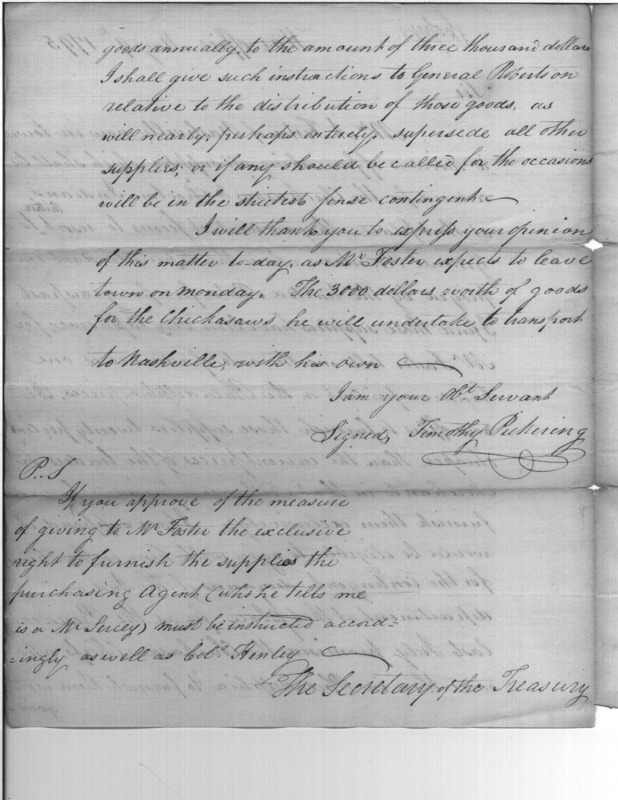 goods annually, to the amount of three thousand dollars
I shall give such instructions to General Robertson
relative to the distribution of those goods, as
will nearly, perhaps entirely, supersede all other
supplies, or if any should be called for the occasions
will be in the strictest sense contingent.
I will thank you to express your opinion
of this matter to-day, as Mr. Foster expects to leave
town on monday. The 3000 dollars worth of goods
for the Chickasaws he will undertake to transport
to Nashville, with his own
I am your Obt. Servant
Signed, Timothy Pickering
P.. S
If you approve of the measure
of giving to Mr. Foster the exclusive
right to furnish the supplies the
purchasing Agent (who he tells me
is a Mr. ) must be instructed accord-
-ingly as well as Colo. Henley
The Secretary of the Treasury